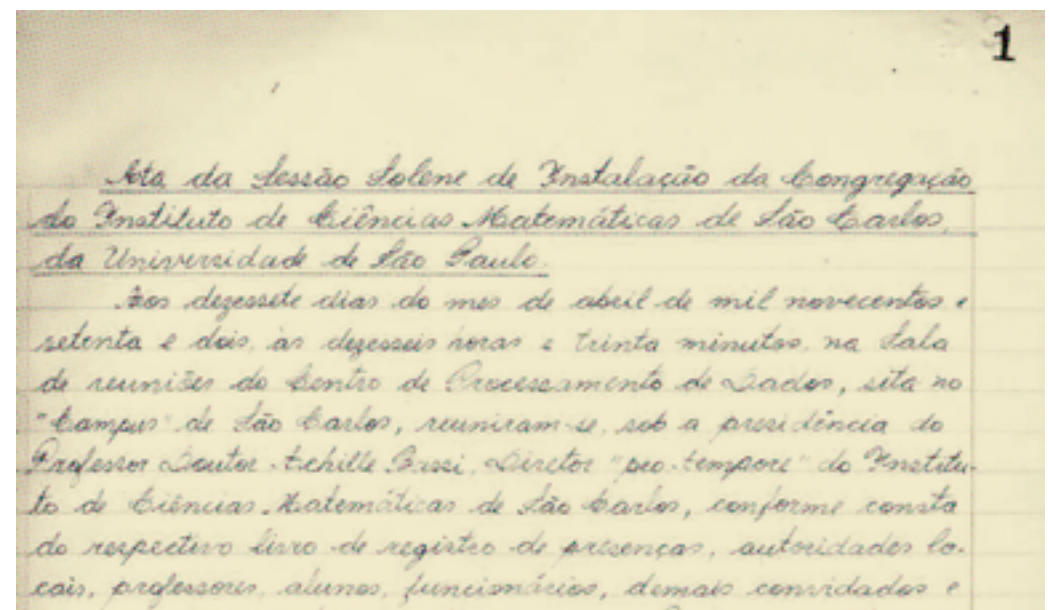 1
Ata da Sessão Solene de Instalação da Congregação
do Instituto de Ciências Matemáticas de São Carlos,
da Universidade de São Paulo.
Aos dezessete dias do mes de abril de mil novecentos e
setenta e dois, às dezesseis horas e trinta minutos, na Sala
de reuniões do Centro de Processamento de Dados, sita no
"Campus" de São Carlos, reuniram-se, sob a presidência do
Professor Doutor Achille Bassi, Diretor "pro-tempore" do Institu-
to de Ciências Matemáticas de São Carlos, conforme consta
do respectivo livro de registro de presenças, autoridades lo-
cais, professores, alunos, funcionários, demais convidados e